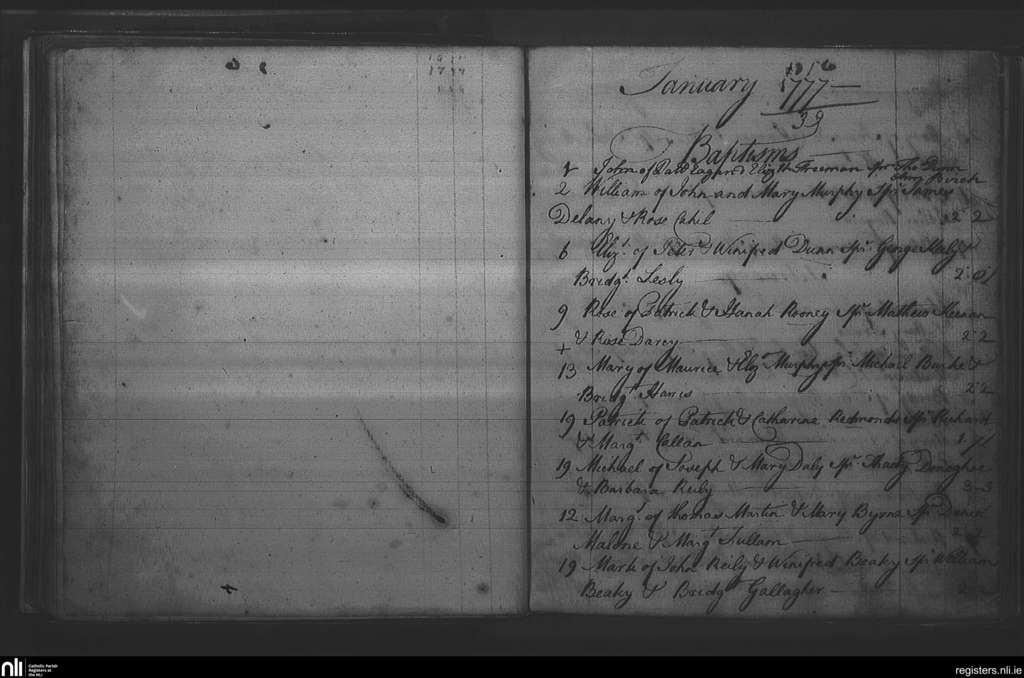 1777
January 1777
39
Baptisms
1 John of Patt Eagan & Elizth Freeman spr Tho Dunn
Ann Birch
2 William of John and Mary Murphy Spr James
Delany & Rose Cahil 2 2
6 Elizt. of Peter & Winifred Dunn Spr. George &
Bridgt. Lesly 2
9 Rose of Patrick & Hanah Rooney Spr Mathew Keenan
& Rose Darcy 2 2
+
13 Mary of Maurice & Elizt Murphy spr Michael Burke &
Bridgt Harris 2 2
19 Patrick of Patrick & Catharine Redmonds Spr Richard
& Margt. Callan 1 1
19 Michael of Joseph & Mary Daly Spr. Thady Donoghoe
& Barbara Reily 3-3
12 Margt. of Thomas Martin & Mary Byrne Spr
Malone & Margt Tullam 2
19 Mark of John Reily & Winifred Beaky Spr William
Beaky & Bridgt Gallagher 2-2
nli
Catholic Parish
Registers at
the NLI
registers.nli.ie